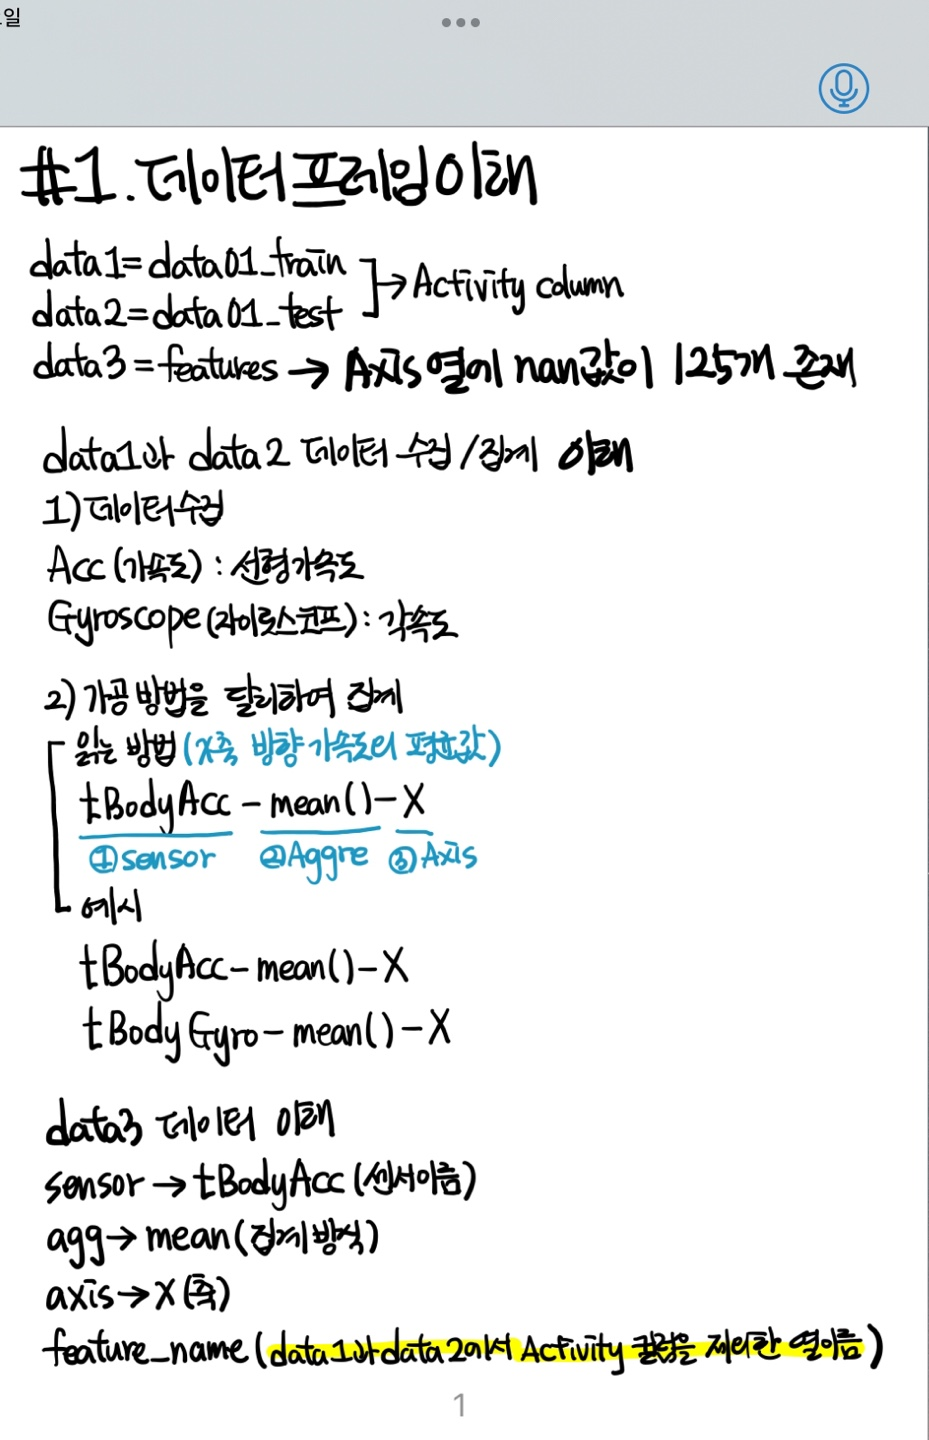 일
#1. 데이터프레임 이해
data1 = data01_train
data2 = data01_test
→ Activity column
data3 = features → Axis 열에 nan값이 125개 존재
data1과 data2 데이터 수집/집계 이해
1) 데이터수집
Acc (가속도) : 선형가속도
Gyroscope (자이로스코프) : 각속도
2) 가공 방법을 달리하여 집계
읽는 방법 (X축 방향 가속도의 평균값)
tBodyAcc - mean() - X
①sensor ②Aggre ③Axis
예시
tBodyAcc - mean() - X
tBodyGyro - mean() - X
data3 데이터 이해
sensor → tBodyAcc (센서이름)
agg → mean (집계방식)
axis → X (축)
feature_name (data1과 data2에서 Activity 컬럼을 제외한 열이름)
1